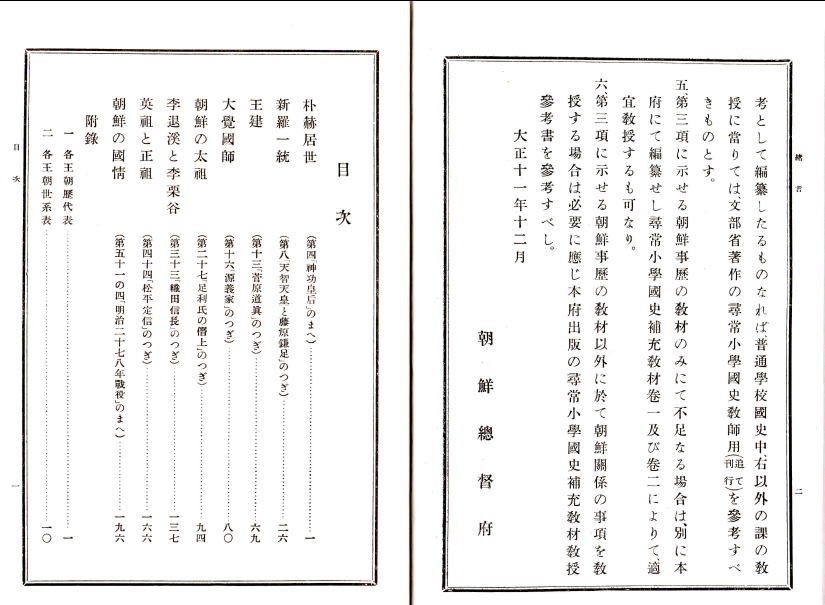 緒言
二
考として編纂したるものなれば、普通學校國史中、右以外の課の敎
授に當りては、文部省著作の尋常小學國史敎師用(追て刊行)を參考すべ
きものとす。
五、第三項に示せる朝鮮事歷の敎材のみにて不足なる場合は、別に本
府にて編纂せし尋常小學國史補充敎材卷一及び卷二によりて、適
宜敎授するも可なり。
六、第三項に示せる朝鮮事歷の敎材以外に於て朝鮮關係の事項を敎
授する場合は、必要に應じ本府出版の尋常小學國史補充敎材敎授
參考書を參考すべし。
大正十一年十二月
朝鮮總督府
目次
朴赫居世(第四「神功皇后」のまへ)……一
新羅一統(第八「天智天皇と藤原鎌足」のつぎ)……二六
王建(第十三「菅原道眞」のつぎ)……六九
大覺國師(第十六「源義家」のつぎ)……八〇
朝鮮の太祖(第二十七「足利氏の僭上」のつぎ)……九四
李退溪と李栗谷(第三十三「織田信長」のつぎ)……一三七
英祖と正祖(第四十四「松平定信」のつぎ)……一六六
朝鮮の國情(第五十一の四「明治二十七八年戰役」のまへ)……一九六
附錄
一 各王朝歷代表……一
二 各王朝世系表……一〇
目次
一